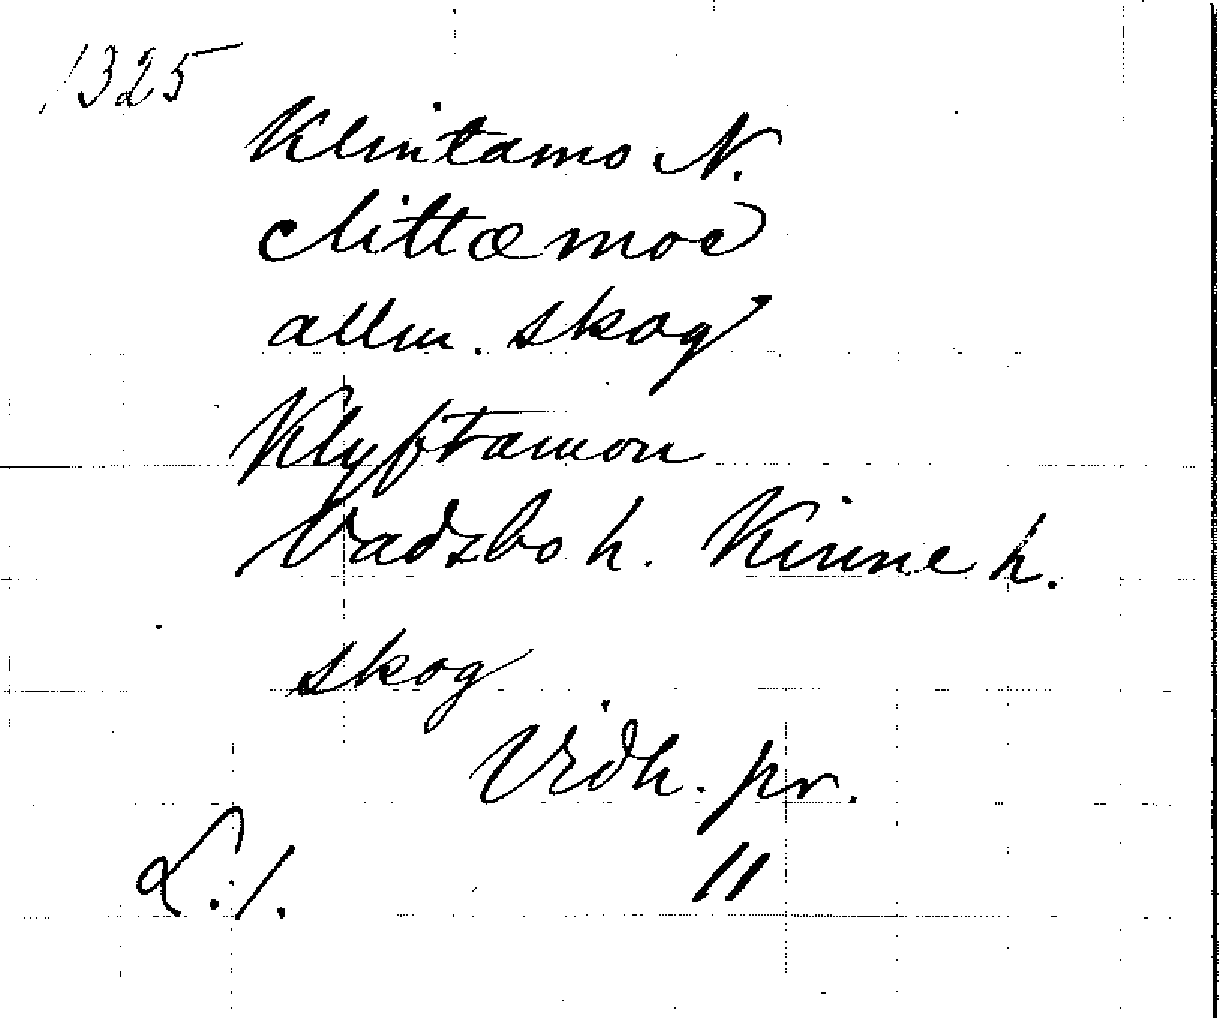 1325
Klintamo N.
clittæmoe
allm. skog
Klyftamon
Vadsbo h. Kinne h.
skog
Vidh. pr.
L. 1. 11